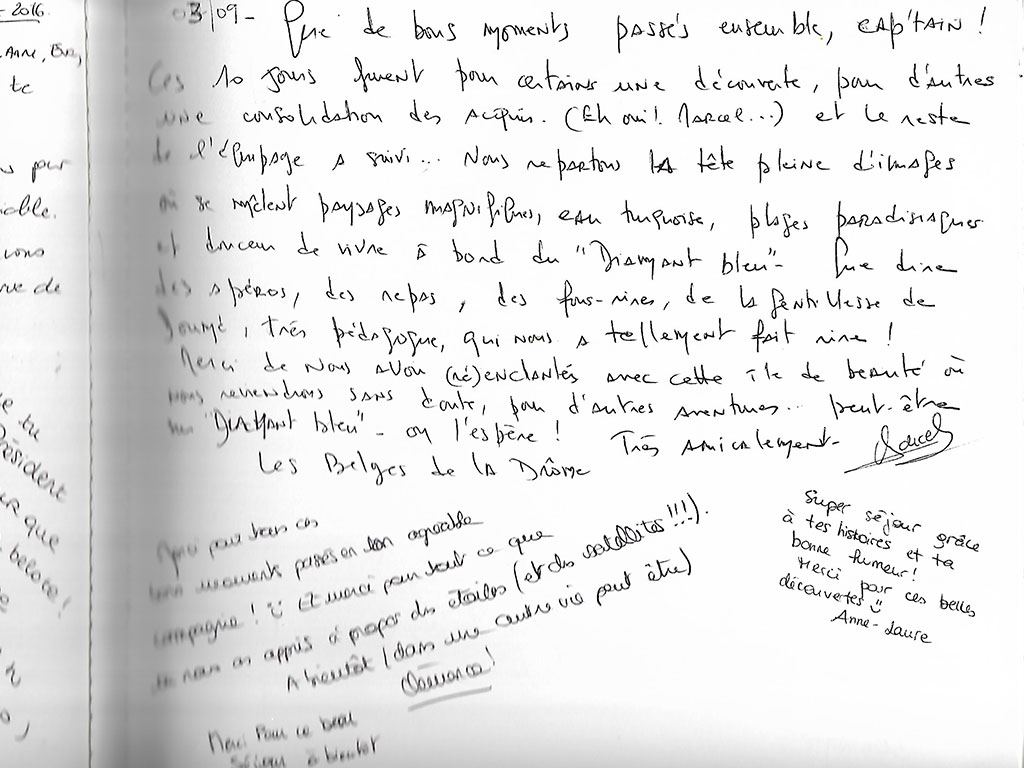 - 2016
Anne, Eva,
te
03/09 - Que de bons moments passés ensemble, CAP'TAIN !
Ces 10 jours furent pour certains une découverte, pour d'autres
une consolidation des acquis. (Eh oui! Marcel...) et le reste
de l'équipage a suivi... Nous repartons la tête pleine d'images
où se mêlent paysages magnifiques, eau turquoise, plages paradisiaques
et douceur de vivre à bord du "Diamant bleu" - Que dire
des apéros, des repas, des fous-rires, de la gentillesse de
, très pédagogue, qui nous a tellement fait rire !
Merci de nous avoir (ré)enchantés avec cette île de beauté où
nous reviendrons sans doute, pour d'autres aventures... peut-être
sur "Diamant bleu" - on l'espère ! Très amicalement -
Les Belges de la Drôme
par
able.
vous
de
tu
Président
que
belote !
Merci pour tous ces
bons moments passés en ton agréable
compagnie ! Et merci pour tout ce que
tu nous as appris à propos des étoiles (et des satellites !!!).
A bientôt (dans une autre vie peut être)
Super séjour grâce
à tes histoires et ta
bonne humeur !
Merci pour ces belles
découvertes
Anne-Laure
Merci Pour ce beau
séjour à bientot